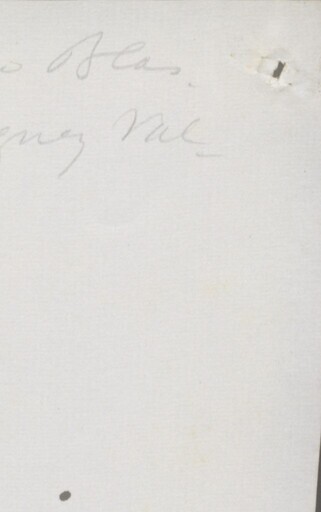 o Blas.
gney Val-